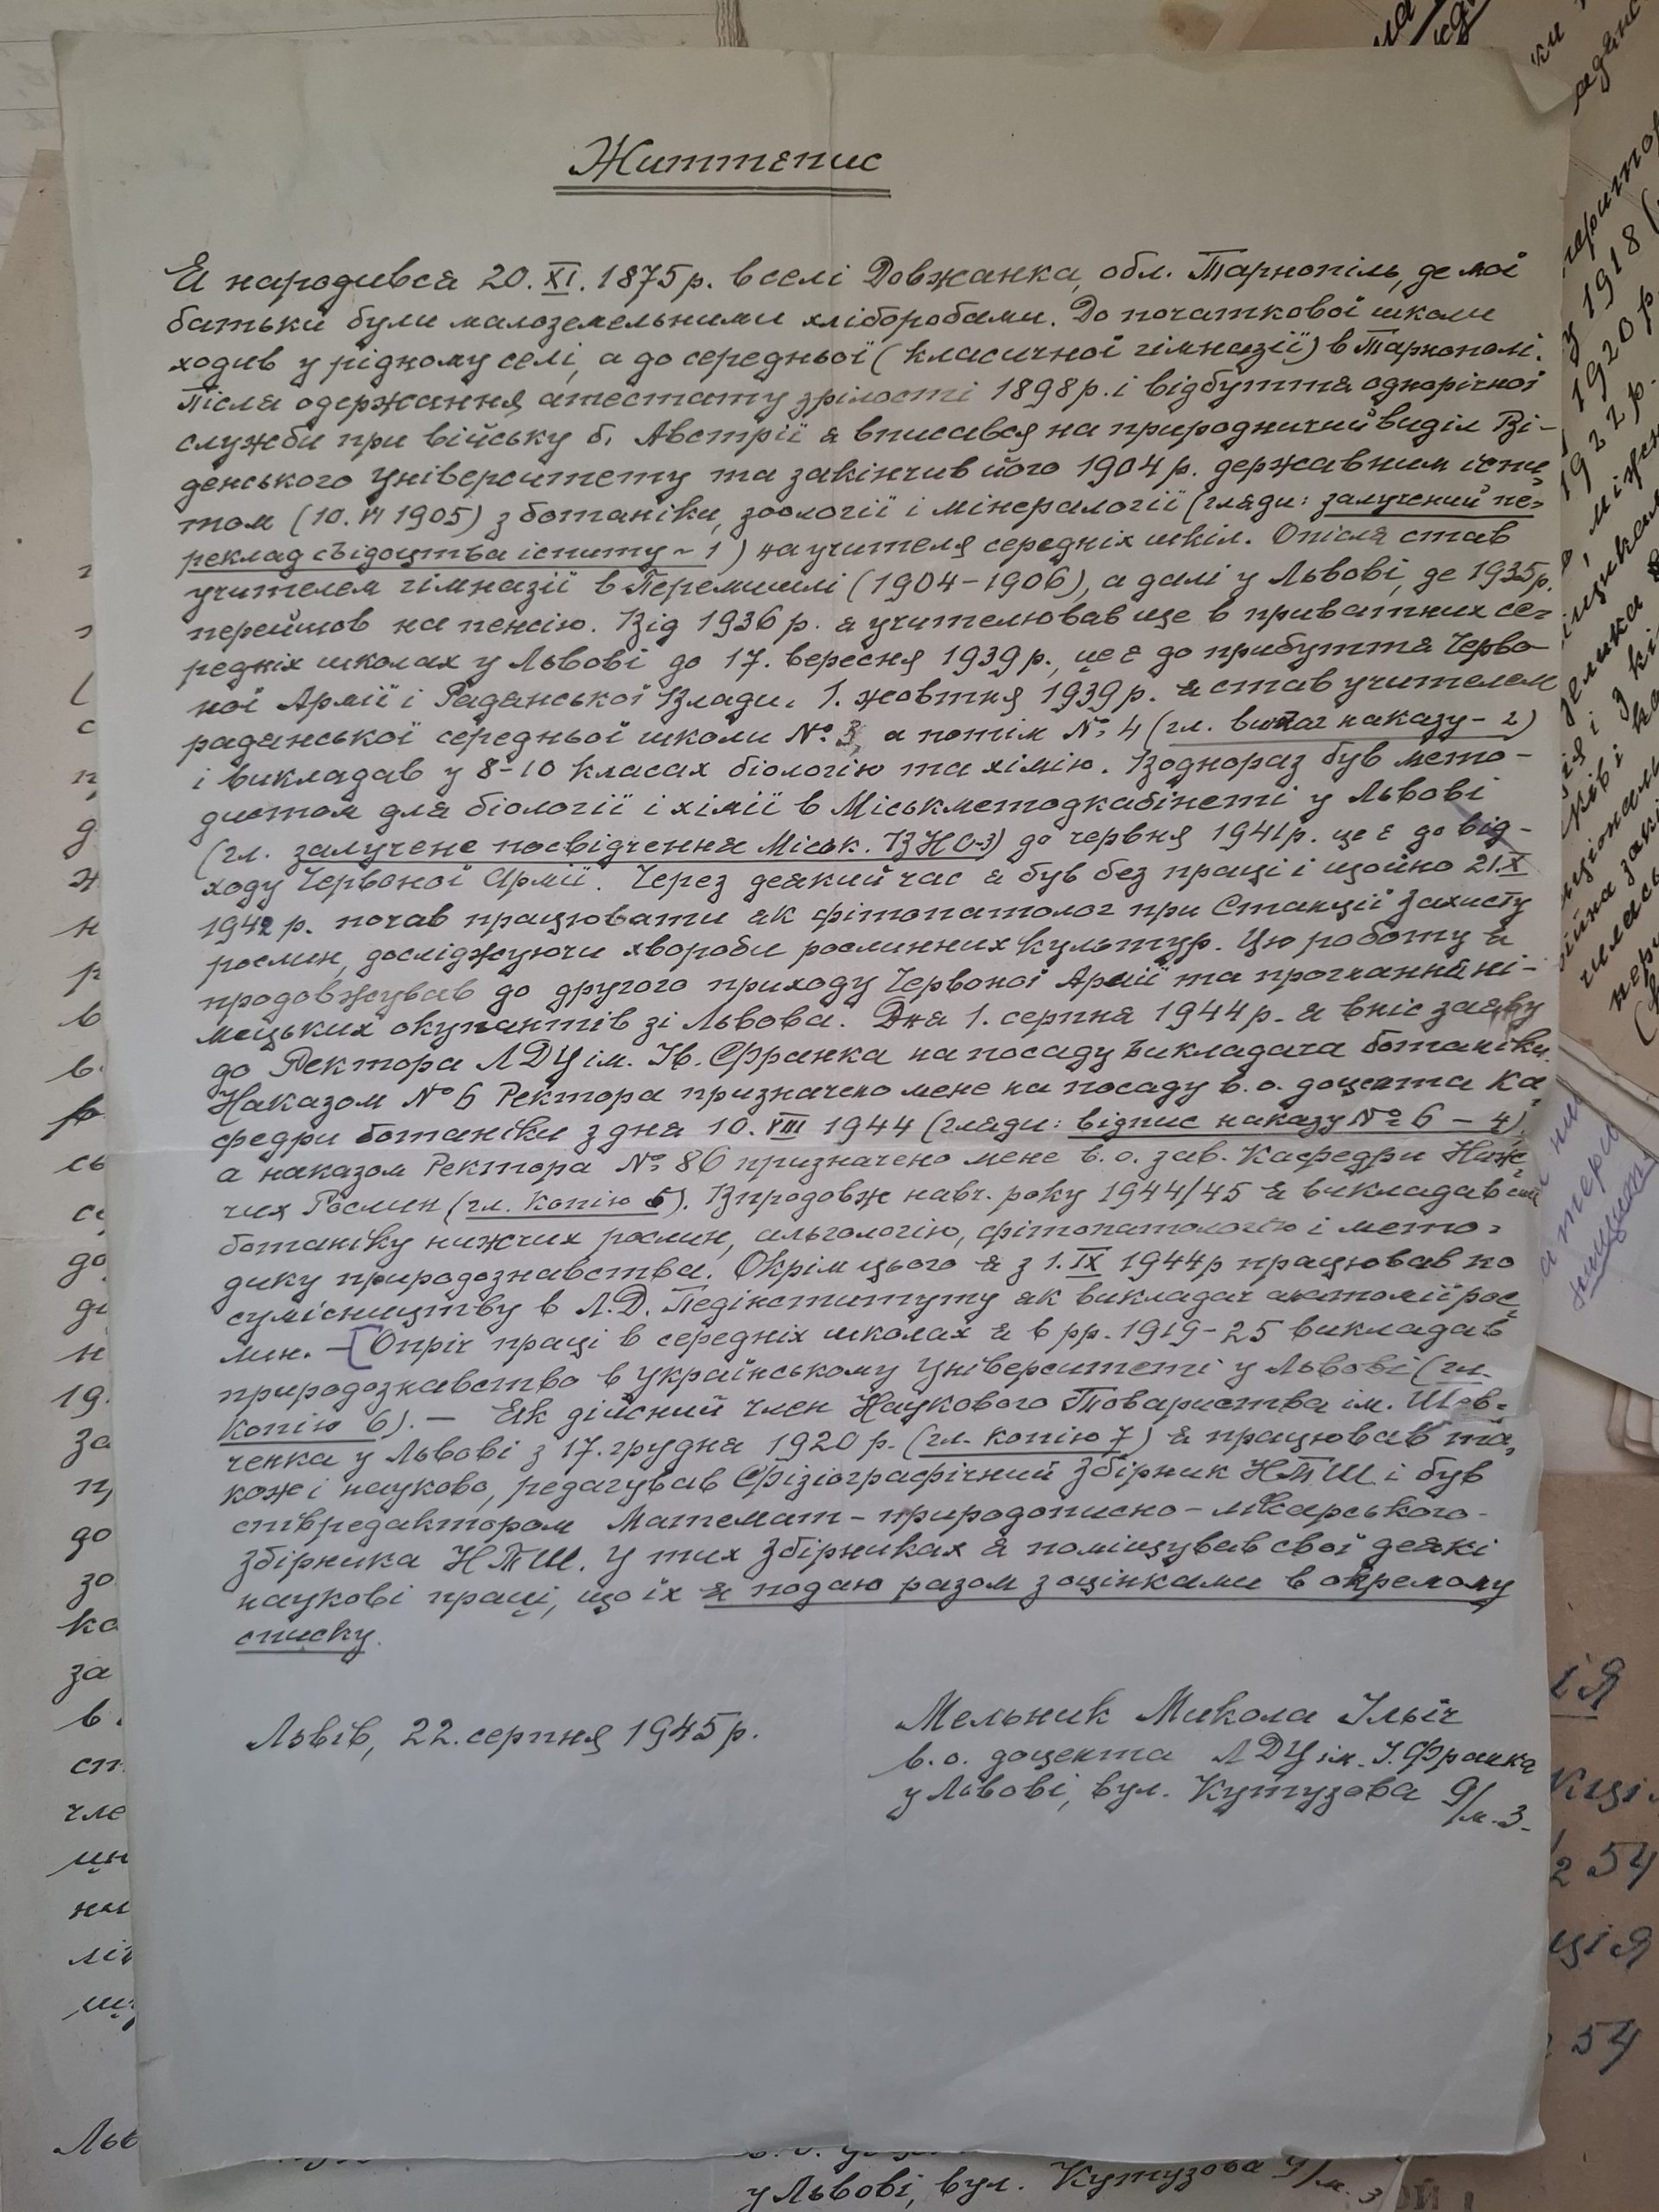 Життєпис
Я народився 20. XI. 1875 р. в селі Довжанка, обл. Тарнопіль, де мої
батьки були малоземельними хліборобами. До початкової школи
ходив у рідному селі, а до середньої (класичної гімназії) в Тарнополі.
Після одержання атестату зрілості 1898 р. і відбуття однорічної
служби при війську б. Австрії я вписався на природничий виділ Ві-
денського Університету та закінчив його 1904 р. державним іспи-
том (10. VI 1905) з ботаніки, зоології і мінералогії (гляди: залучений пе-
реклад свідоцтва іспиту - 1) на учителя середніх шкіл. Опісля став
учителем гімназії в Перемишлі (1904-1906), а далі у Львові, де 1935 р.
перейшов на пенсію. Від 1936 р. я учителював ще в приватних се-
редніх школах у Львові до 17. вересня 1939 р., це є до прибуття Черво-
ної Армії і Радянської Влади. 1. жовтня 1939 р. я став учителем
радянської середньої школи № 3, а потім № 4 (гл. витяг наказу - 2)
і викладав у 8-10 класах біологію та хімію. Воднораз був мето-
дистом для біології і хімії в Міськметодкабінеті у Львові
(гл. залучене посвідчення Міськ. ВНО-3) до червня 1941 р. це є до від-
ходу Червоної Армії. Через деякий час я був без праці і щойно 21. X
1942 р. почав працювати як фітопатолог при Станції Захисту
рослин, досліджуючи хвороби рослинних культур. Цю роботу я
продовжував до другого приходу Червоної Армії та прогнання ні-
мецьких окупантів зі Львова. Дня 1. серпня 1944 р. я вніс заяву
до Ректора ЛДУ ім. Ів. Франка на посаду викладача ботаніки.
Наказом № 6 Ректора призначено мене на посаду в. о. доцента Ка-
федри ботаніки з дня 10. VIII 1944 (гляди: відпис наказу № 6 - 4),
а наказом Ректора № 86 призначено мене в. о. зав. Кафедри Ниж-
чих Рослин (гл. копію 5). Впродовж навч. року 1944/45 я викладав
ботаніку нижчих рослин, альгологію, фітопатологію і мето-
дику природознавства. Окрім цього я з 1. IX 1944 р працював по
сумісництву в Л. Д. Педінституту як викладач анатомії рос-
лин. - [Опріч праці в середніх школах я в рр. 1919-25 викладав
природознавство в Українському Університеті у Львові (гл.
копію 6). — Як дійсний член Наукового Товариства ім. Шев-
ченка у Львові з 17. грудня 1920 р. (гл. копію 7) я працював та-
кож і науково, редагував Фізіографічний Збірник НТШ і був
співредактором Математ-природописно-лікарського-
Збірника НТШ. У тих Збірниках я поміщував свої деякі
наукові праці, що їх я подаю разом з оцінками в окремому
списку.
Львів, 22. серпня 1945 р.
Мельник Микола Ільіч
в. о. доцента ЛДУ ім. І. Франка
у Львові, вул. Кутузова 9/м. 3.
у Львові, вул. Кутузова 9/м. 3